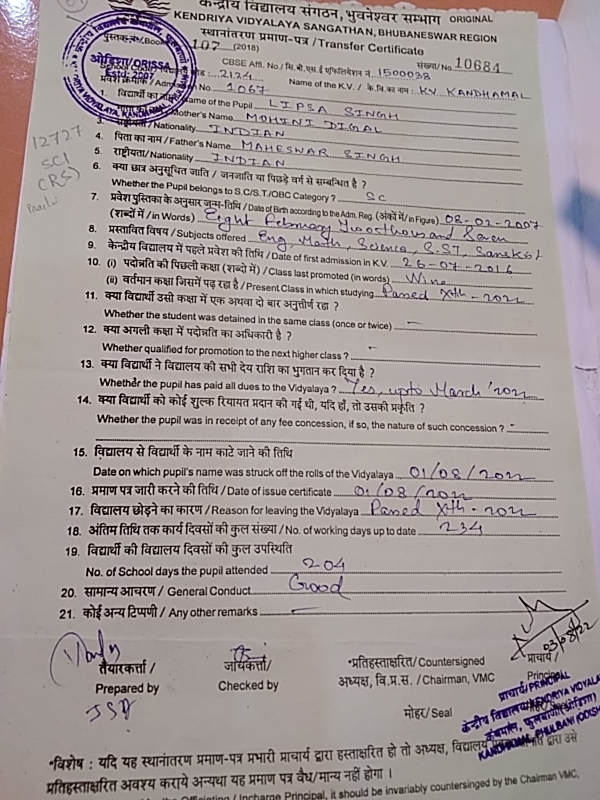 केन्द्रीय विद्यालय संगठन, भुवनेश्वर सम्भाग ORIGINAL
KENDRIYA VIDYALAYA SANGATHAN, BHUBANESWAR REGION
स्थानांतरण प्रमाण-पत्र / Transfer Certificate
पुस्तक सं./Book 107 (2018) संख्या/No 10684
CBSE Affl. No / सि.बी.एस.ई एफिलियेशन नं. 1500038
School Code / 2124 Name of the K.V. / के.वि.का नाम: KV KANDHAMAL
प्रवेश क्रमांक / Admission No 1067
1. विद्यार्थी का नाम / Name of the Pupil LIPSA SINGH
Mother's Name MOHINI DIGAL
3. राष्ट्रीयता / Nationality INDIAN
4. पिता का नाम / Father's Name MAHESWAR SINGH
5. राष्ट्रीयता / Nationality INDIAN
6. क्या छात्र अनुसूचित जाति / जनजाति या पिछड़े वर्ग से सम्बन्धित है ?
Whether the Pupil belongs to S.C/S.T./OBC Category ? SC
7. प्रवेश पुस्तिका के अनुसार जन्म-तिथि / Date of Birth according to the Adm. Reg. (अंकों में / in Figure) 08-02-2007
(शब्दों में / in Words) Eight February Twothousand Seven
8. प्रस्तावित विषय / Subjects offered Eng, Math, Science, S.ST, Sanskrit
9. केन्द्रीय विद्यालय में पहले प्रवेश की तिथि / Date of first admission in K.V. 26-07-2016
10. (i) पदोन्नति की पिछली कक्षा (शब्दो में) / Class last promoted (in words) Nine
(ii) वर्तमान कक्षा जिसमें पढ़ रहा है / Present Class in which studying Passed Xth-2022
11. क्या विद्यार्थी उसी कक्षा में एक अथवा दो बार अनुत्तीर्ण रहा ?
Whether the student was detained in the same class (once or twice) —
12. क्या अगली कक्षा में पदोन्नति का अधिकारी है ?
Whether qualified for promotion to the next higher class ? —
13. क्या विद्यार्थी ने विद्यालय की सभी देय राशि का भुगतान कर दिया है ?
Whether the pupil has paid all dues to the Vidyalaya ? Yes, upto March '2022
14. क्या विद्यार्थी को कोई शुल्क रियायत प्रदान की गई थी, यदि हाँ, तो उसकी प्रकृति ?
Whether the pupil was in receipt of any fee concession, if so, the nature of such concession ? -
15. विद्यालय से विद्यार्थी के नाम काटे जाने की तिथि
Date on which pupil's name was struck off the rolls of the Vidyalaya 01/08/2022
16. प्रमाण पत्र जारी करने की तिथि / Date of issue certificate 01/08/2022
17. विद्यालय छोड़ने का कारण / Reason for leaving the Vidyalaya Passed Xth-2022
18. अंतिम तिथि तक कार्य दिवसों की कुल संख्या / No. of working days up to date 234
19. विद्यार्थी की विद्यालय दिवसों की कुल उपस्थिति
No. of School days the pupil attended 204
20. सामान्य आचरण / General Conduct Good
21. कोई अन्य टिपणी / Any other remarks —
ओड़िशा/ORISSA
Estd: 2007
12727
SCI
CRS)
03/08/22
तैयारकर्त्ता / जांचकर्त्ता/ *प्रतिहस्ताक्षरित/ Countersigned प्राचार्य /
Prepared by Checked by अध्यक्ष, वि.प्र.स. / Chairman, VMC Principal
मोहर/ Seal
प्राचार्य/PRINCIPAL
केन्द्रीय विद्यालय/KENDRIYA VIDYALAYA
KANDHAMAL, PHULBANI (ODISHA)
*विशेष : यदि यह स्थानांतरण प्रमाण-पत्र प्रभारी प्राचार्य द्वारा हस्ताक्षरित हो तो अध्यक्ष, विद्यालय द्वारा उसे
प्रतिहस्ताक्षरित अवश्य कराये अन्यथा यह प्रमाण पत्र वैध/मान्य नहीं होगा ।
Officiating / Incharge Principal, it should be invariably countersinged by the Chairman VMC,